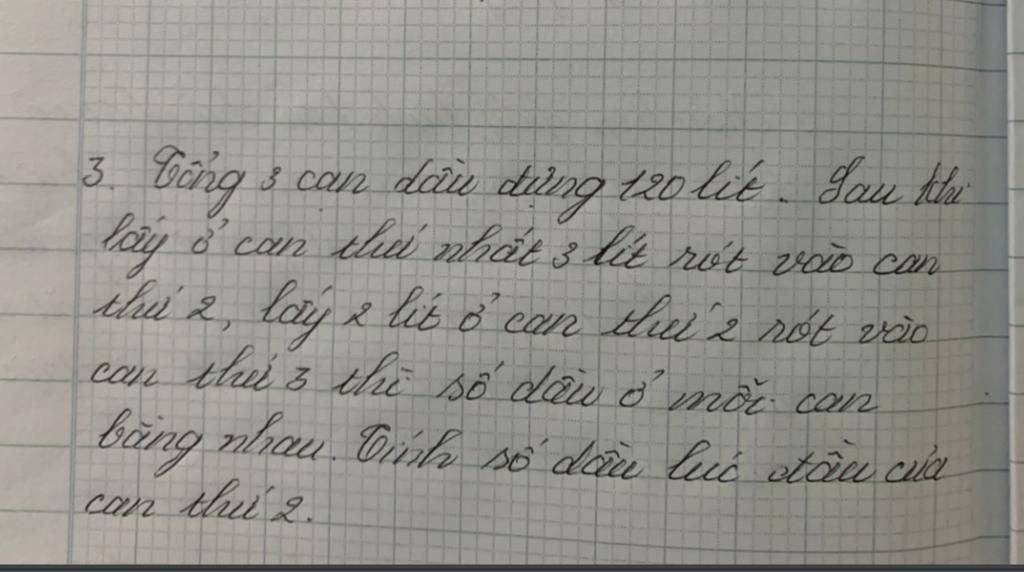 3. Tổng 3 can dầu đựng 120 lít. Sau khi
lấy ở can thứ nhất 3 lít rót vào can
thứ 2, lấy 2 lít ở can thứ 2 rót vào
can thứ 3 thì số dầu ở mỗi can
bằng nhau. Tính số dầu lúc đầu của
can thứ 2.